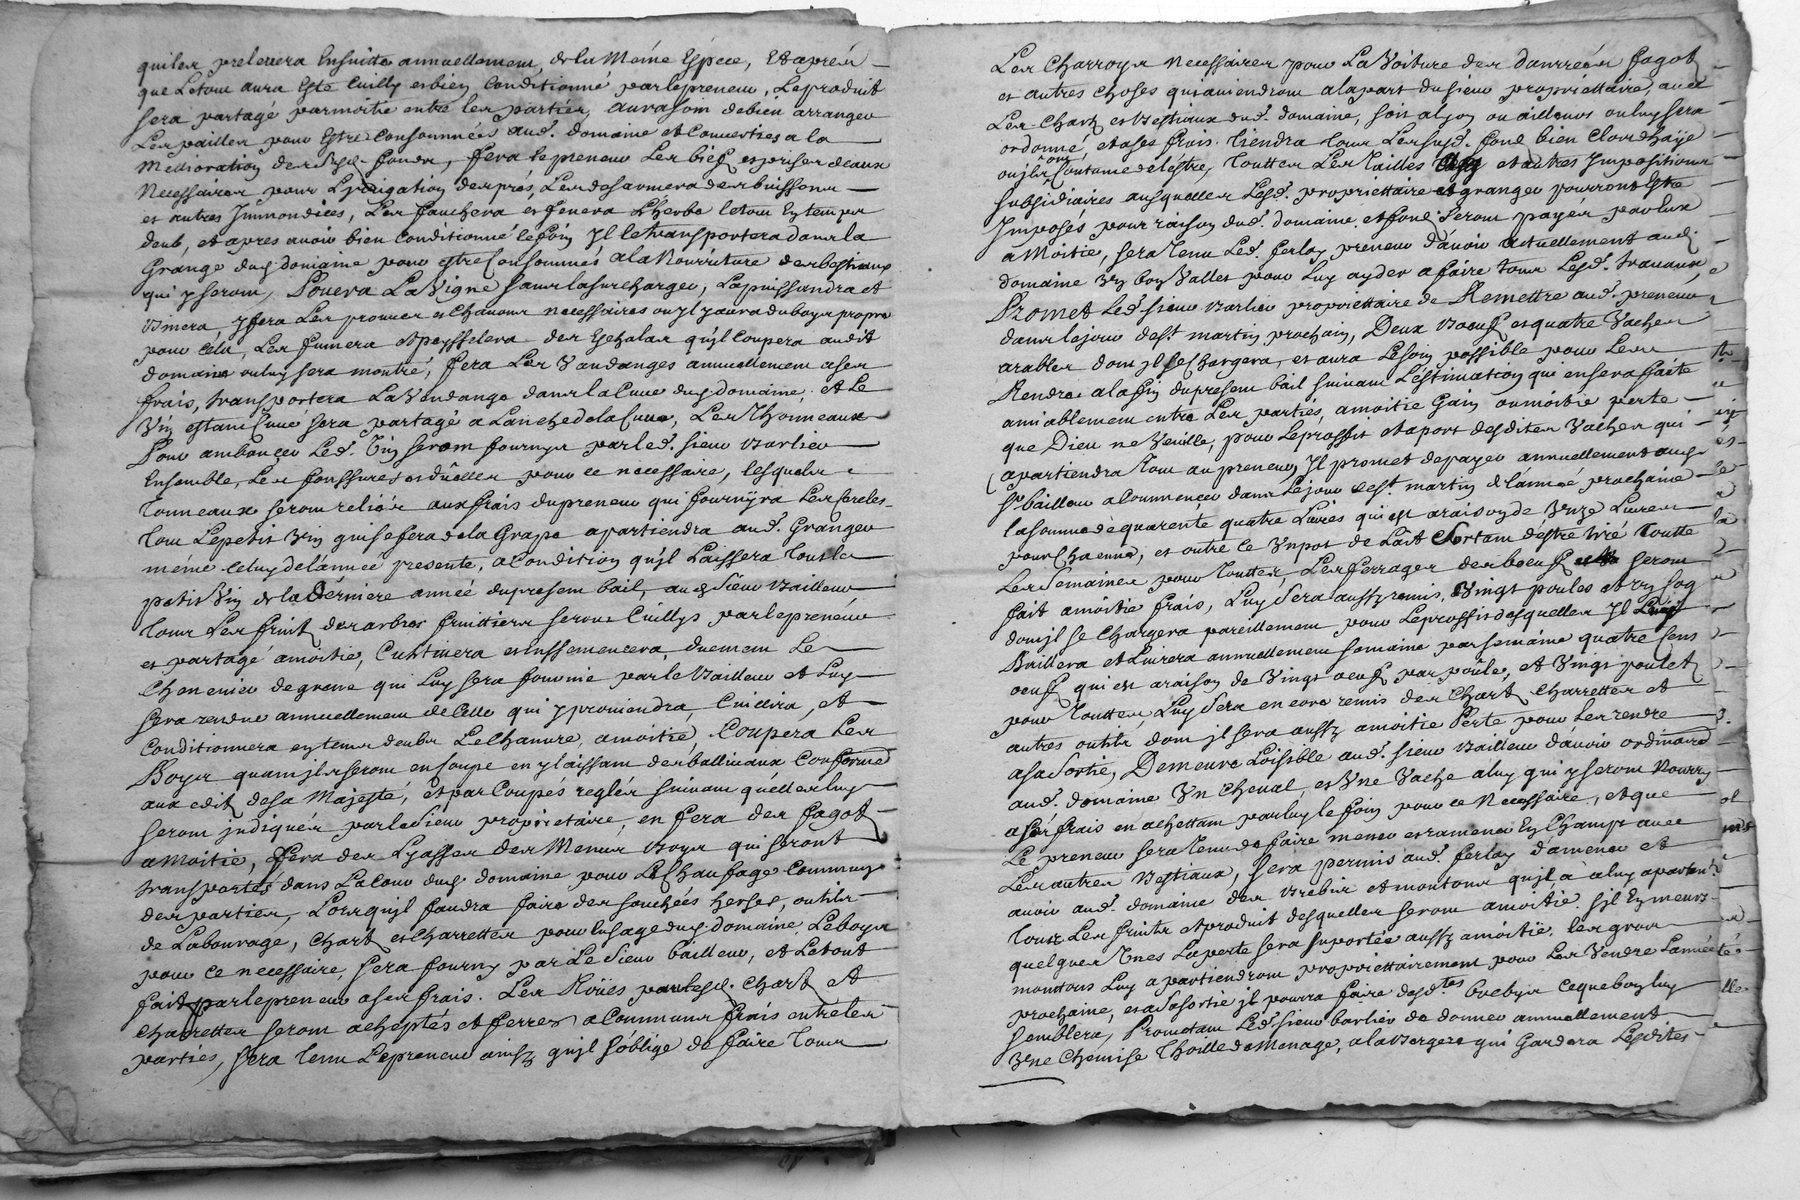 quiler prelevera Ensuitte annuellement de la Même Espece, Et aprés
que Le tout aura Esté Cuilly et bien Conditionné par le preneur, Le produit
sera partagé par moitié entre les parties, aura soin de bien arranger
Les pailles pour Estre Consommées aud. domaine et Converties a la
Melioration des fonds, fera le preneur Les bief et prises deaux
Necessaires pour Lyrrigation des prés, Les desarmera des buissons
et autres Immondices, Les fauchera et fenera Lherbe le tout En temps
deub, et apres avoir bien Conditionné le foin Il le transportera dans la
Grange dud. domaine pour estre Consommés a la Nourriture des bestiaux
qui y seront, Pouera La Vigne sans la surcharger, La puissandra et
binera, y fera Les provins et Chavons necessaires ou il y aura du boys propre
pour Cela, Les fumera et peysselera des Echalas qu'jl Coupera audit
domaine ou luy sera montré, fera Les Vandanges annuellement a ses
frais, transportera La Vendange dans la Cuve dud. domaine, et Le
Vin estant Cuvé sera partagé a Lanche de la Cuve, Les Thonneaux
Pour ambouçer Led. Vin seront fournys par led. sieur Barlieu
Ensemble, Les fonssures et düelles pour ce necessaire, lesquels
Tonneaux seront reliés aux frais du preneur qui fournÿra Les sercles
Tout Le petit Vin qui se fera de la Grape apartiendra aud. Granger
même Celuy de lannée presente, a Condition qu'jl Laissera Tout le
petit Vin de la Derniere année du present bail, aud. Sieur Bailleur
Tous Les fruits des arbres fruittiers seront Cuillys par le preneur
et partagé amoitié, Cultivera et Enssemencera, duement Le
Chenevier de grene qui Luy sera fournie par le Bailleur et Luy
sera rendue annuellement de Celle qui y proviendra, Cuillira, et
Conditionnera en tems deubs Le Chanvre, amoitié, Coupera Les
Boys quant jls seront en Coupe en y laissant des balliveaux Conformé
aux edits de sa Majesté, et par Coupés reglés suivant quelles luy
seront jndiqués par le sieur proprietaire, en fera des fagots
a Moitié, fera des Lyasses des Menus Boys qui seront
transportés dans La Cour dud. domaine pour Le Chaufage Commun
des parties, Lorsqu'jl faudra faire des souchées herses, outils
de Labourage, Charts et Charrettes pour lusage dud. domaine, Le boys
pour ce necessaire, sera fourny par Le Sieur bailleur, et Le tout
fait par le preneur a ses frais. Les Roües pour lesd. Charts et
Charrettes seront acheptés et ferrés a Communs frais entre les
parties, sera Tenu Le preneur ainsy qu'jl soblige de faire Tous
Les Charroys Necessaires pour La Voiture des danrrées fagots
et autres Choses qui aviendront a la part du sieur propriettaire, avec
Les Charts et Bestiaux dud. domaine, soit a lyon ou ailleurs ou luy sera
ordonné, et a ses frais. Tiendra Tous Les susd. fond bien Clos d'haÿe
ou jls ont Coutume de lestre, Touttes Les Tailles et autres Impositions
subsidiaires ausquelles Lesd. propriettaire et granger pourront Estre
Imposés pour raison dud. domaine et fond seront payés par Eux
a Moitié, sera Tenu Led. ferlay preneur d'avoir actuellement aud.
domaine Un bon Vallet pour Luy ayder a faire tous Lesd. travaux,
Promet Led. sieur Barlieu propriettaire de Remettre aud. preneur
dans le jour de St. martin prochain, Deux Boeufs et quatre Vaches
arables dont jl se Chargera, et aura Le soin possible pour Les
Rendre a la fin du present bail suivant L'Estimation qui en sera faite
amiablement entre Les parties, amoitié Gain ou moitié perte
que Dieu ne Veuille, pour Le proffit et aport desdites Vaches qui
apartiendra Tout au preneur Il promet de payer annuellement aud.
Sr. bailleur a Commencer dans Le jour de St. martin de lannée prochaine
la somme de quarente quatre Livres qui est a raison de Unze Livres
pour Chacune, et outre ce Un pot de Lait Sortant d'estre tiré Toutte
Les Semaines pour Touttes, Les ferrages des boeufs seront
fait amoitié frais, Luy Sera aussy remis, Vingt poules et Un Coq
dont jl se Chargera pareillement pour Le proffit desquelles Il
Baillera et Livrera annuellement semaine par semaine quatre Cens
oeufs qui est a raison de Vingt oeufs par poûle, et Vingt poulets
pour Touttes, Luy Sera encore remis des Charts Charrettes et
autres outils dont jl sera aussy amoitié Perte pour Les rendre
a sa sortie, Demeure Loisible aud. sieur Bailleur d'avoir ordinaire
aud. domaine Un Cheval, et Une Vache a luy qui y seront Nourry
a ses frais en achettant par luy le foin pour ce Necessaire, et que
Le preneur sera Tenu de faire mener et ramener En Champs avec
Les autres Bestiaux, sera permis aud. ferlay d'amener et
avoir aud. domaine des Brebis et moutons qu'jl a a luy apartenants
Tous Les fruits et produit desquelles seront amoitié. sjl En meurt
quelques Unes La perte sera suportée aussy amoitié. les gros
mouttons Luy apartiendront propriettairement pour Les Vendre Lannée
prochaine, et a sa sortie jl pourra faire desdtes brebys ce que bon luy
semblera, Promettant Led. Sieur barlieu de donner annuellement
Une Chemise Thoille de Menage, a la Bergere qui Gardera Lesdites